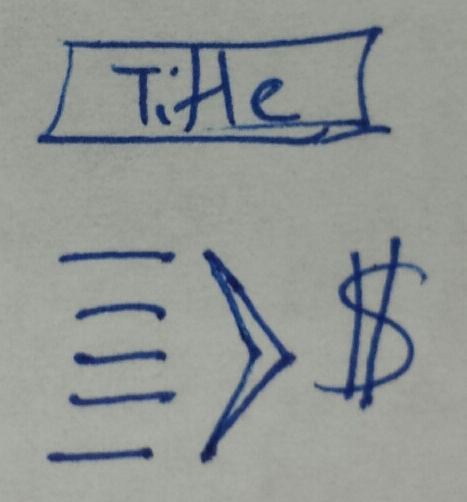 Title
$